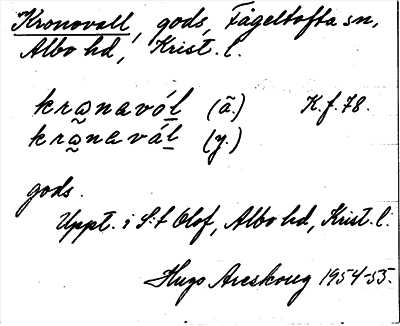 Kronovall, gods, Fågeltofta sn,
Albo hd, Krist. l.
kranavól (ä.) K.f. 78.
kranavál (y.)
gods.
Uppt. i S:t Olof, Albo hd, Krist. l.
Hugo Areskoug 1954-55.